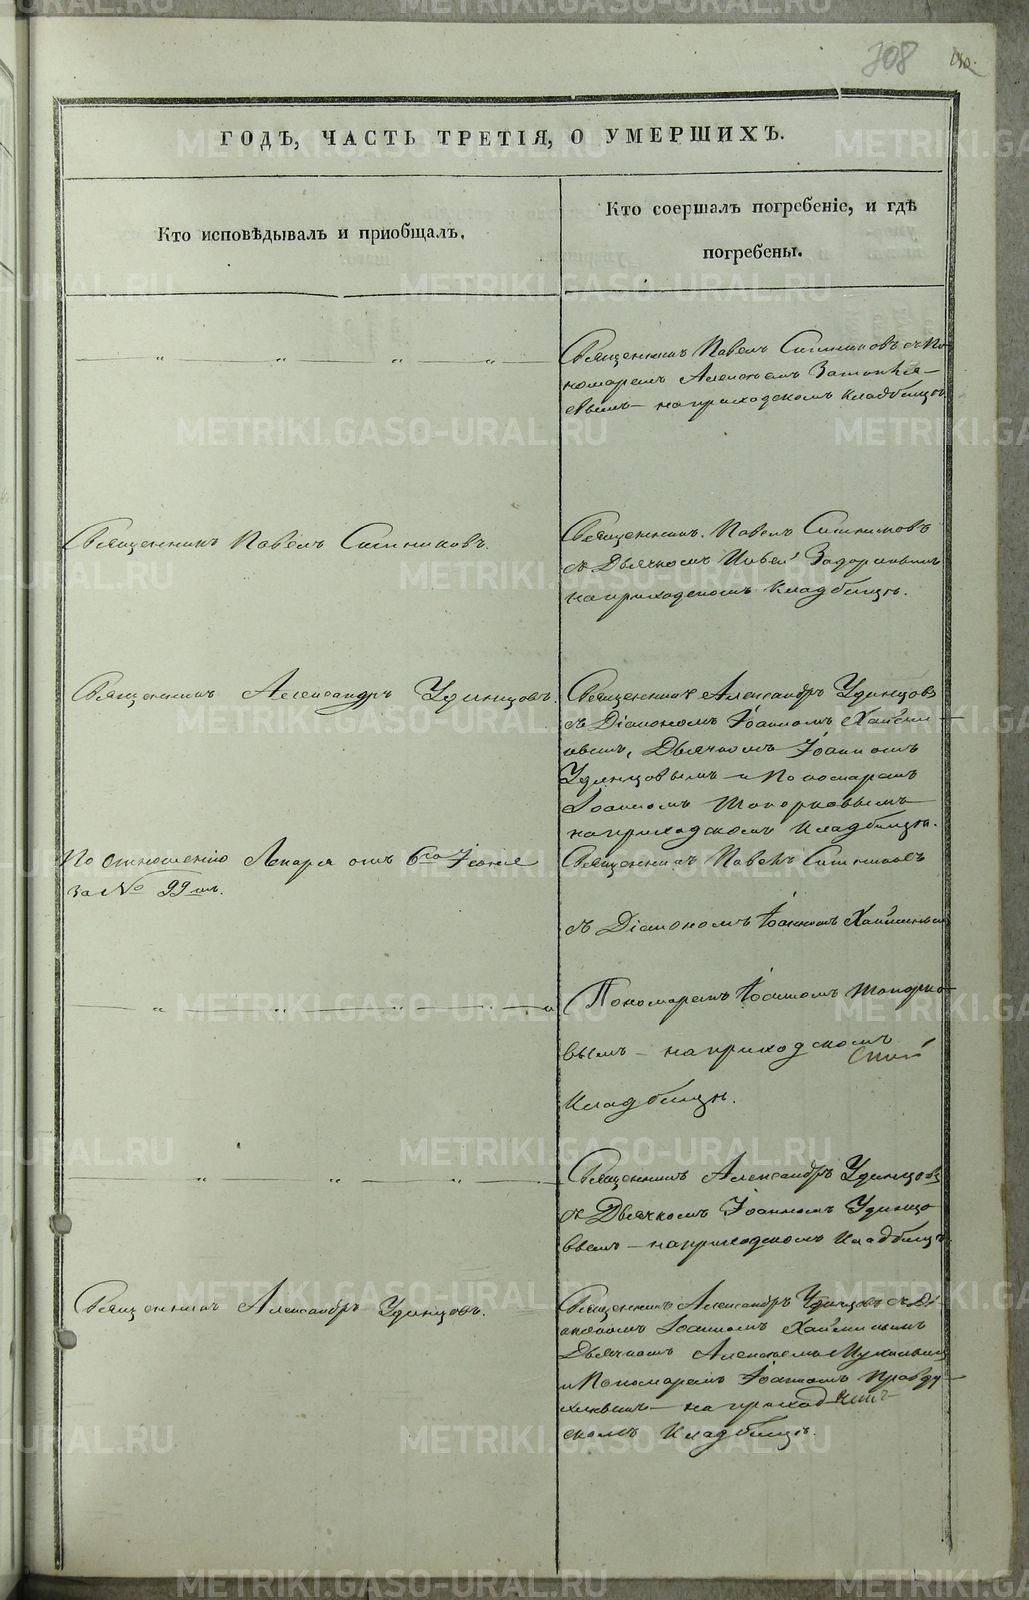 308
ГОДѢ, ЧАСТЬ ТРЕТІЯ, О УМЕРШИХЪ.
Кто исповѣдывалъ и приобщалъ.
Кто соершалъ погребеніе, и гдѣ
погребены.
Священникъ Павелъ Ситниковъ съ По-
номаремъ Алексѣемъ
вымъ – на приходскомъ кладбищѣ
Священникъ Павелъ Ситниковъ.
Священникъ Павелъ Ситниковъ
съ Дьячкомъ
на приходскомъ кладбищѣ.
Священникъ Александръ Удинцовъ.
Священникъ Александръ Удинцовъ
съ Діакономъ Іоанномъ
Дьячкомъ Іоанномъ
Удинцовымъ и Пономаремъ
Іоанномъ Топорковымъ
на приходскомъ кладбищѣ.
По отношенію Лекаря отъ 6го Іюня
за № 99мъ.
Священникъ Павелъ Ситниковъ
съ Діакономъ Іоанномъ
Пономаремъ Іоанномъ Топорко-
вымъ – на приходскомъ
кладбищѣ.
Священникъ Александръ Удинцовъ
съ Дьячкомъ Іоанномъ Удинцо-
вымъ – на приходскомъ кладбищѣ
Священникъ Александръ Удинцовъ.
Священникъ Александръ Удинцовъ съ Ді-
акономъ Іоанномъ
Дьячкомъ Алексѣемъ
и Пономаремъ Іоанномъ
на приход-
скомъ кладбищѣ.
METRIKI.GASO-URAL.RU